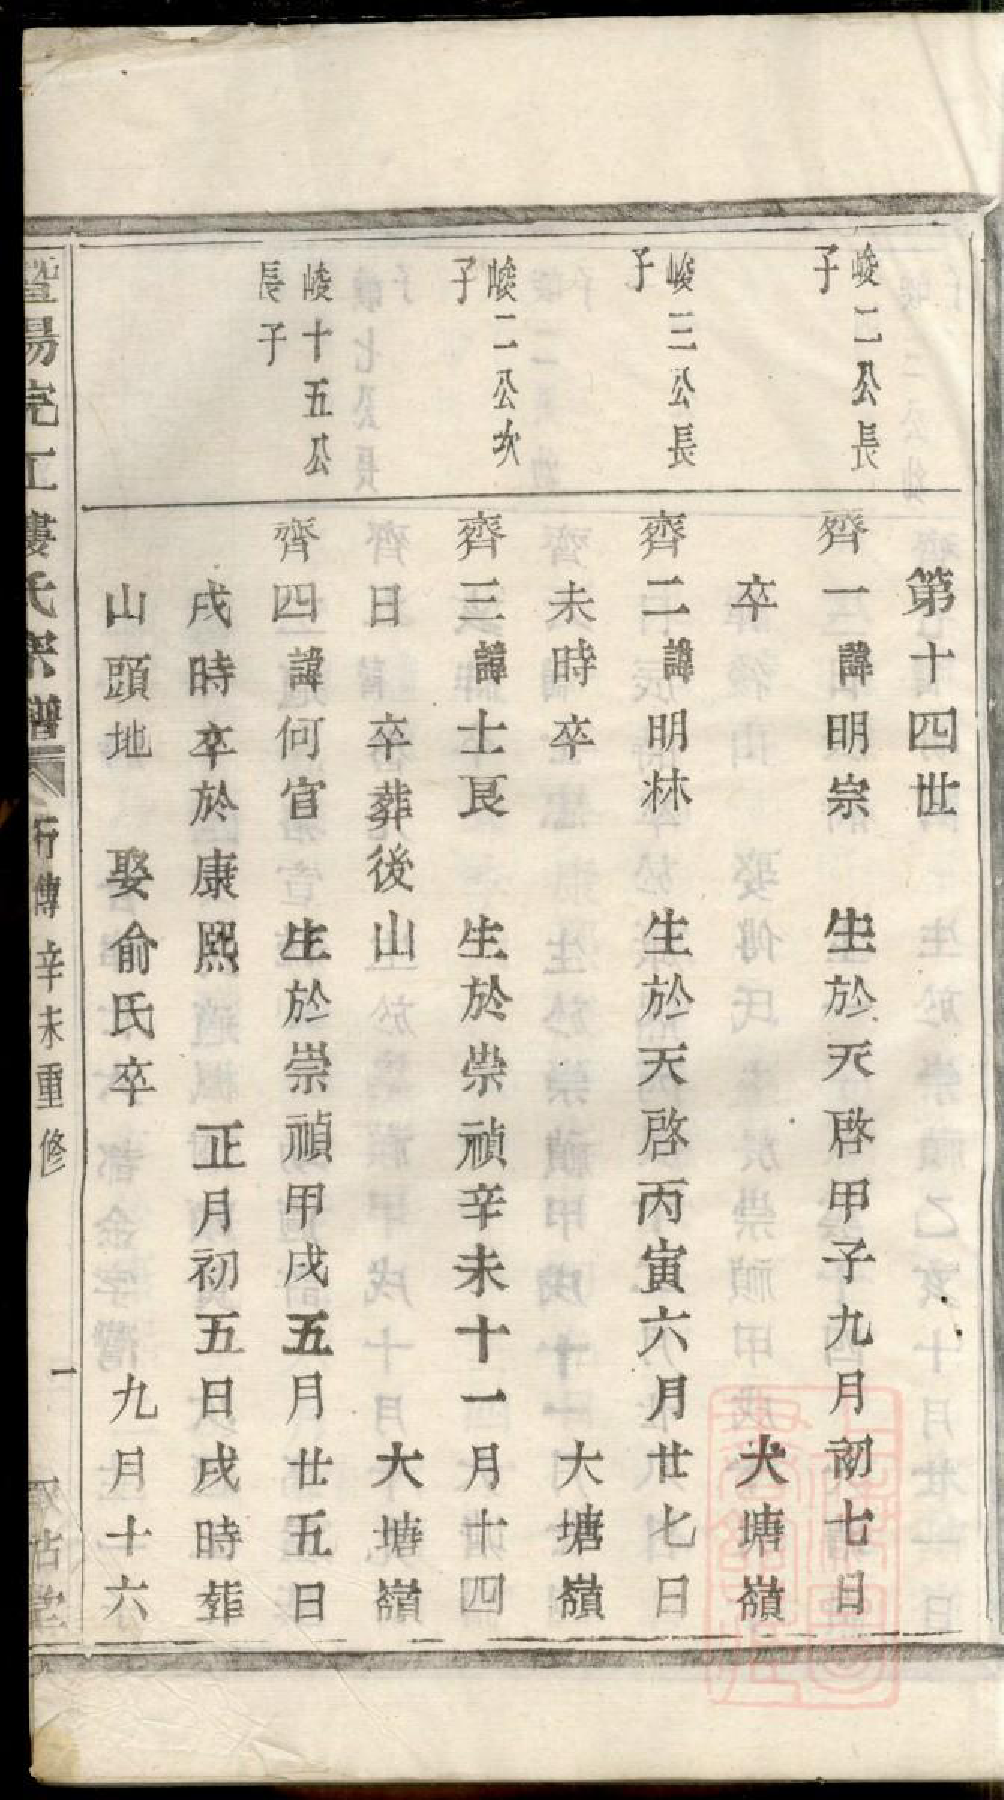 第十四世
峻二公長
子
齊一諱明宗　生於天啓甲子九月初七日
卒　大塘嶺
峻三公長
子
齊二諱明林　生於天啓丙寅六月廿七日
未時卒　大塘嶺
峻二公次
子
齊三諱士良　生於崇禎辛未十一月十四
日　卒葬後山　大塘嶺
峻十五公
長子
齊四諱何官　生於崇禎甲戌五月廿五日
戌時卒於康熙　正月初五日戌時葬
山頭地　娶俞氏卒　九月十六
暨陽完工婁氏宗譜　行傳　辛未重修　一